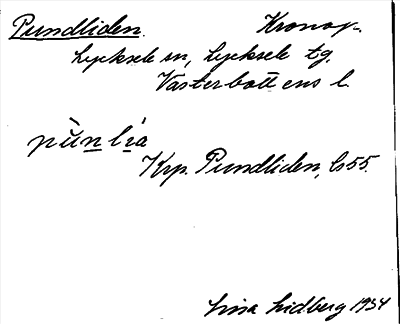 Pundliden. Kronop.
Lycksele sn, Lycksele tg.
Västerbottens l.
pùnlia
Krp. Pundliden, Gs55.
Lisa Lidberg 1934